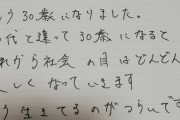 う30歳になりました。
代と違って30歳になると
れから社会の目はどんどん
しくなっていきます
う生きてるのがつらいです